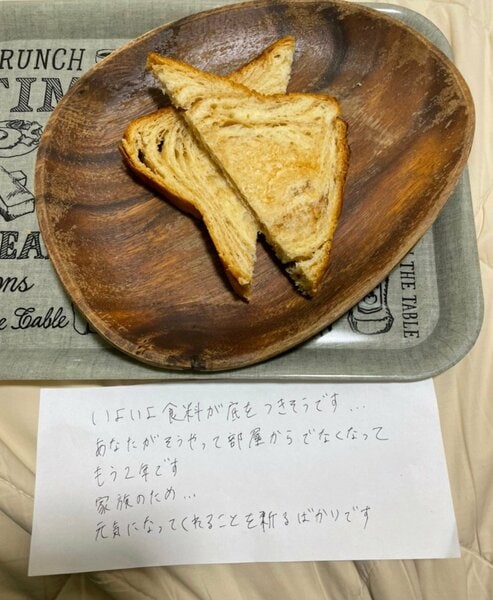 RUNCH
TIM
EA
ons
e Table
THE TABLE
いよいよ食料が底をつきそうです…
あなたがそうやって部屋からでなくなって
もう2年です
家族のため…
元気になってくれることを祈るばかりです